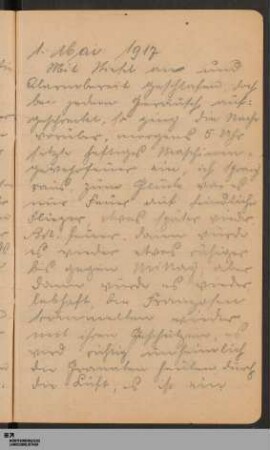 1. Mai 1917
Mit Stiefel an und
Alarmbereit geschlafen, doch
bei jedem Geräusch auf-
geschreckt, so ging die Nacht
vorüber, morgens 5 Uhr
setzte heftiges Maschinen-
gewehrfeuer ein, ich sprang
raus zum Glück war es
nur Feuer auf feindliche
Flieger etwas später wieder
Art. Feuer, dann wurde
es wieder etwas ruhiger
bis gegen Mittag, aber
dann wurde es wieder
lebhaft, die Franzosen
trommelten wieder
mit ihren Geschützen, es
wird richtig unheimlich
die Granaten heulen durch
die Luft, es ist eine